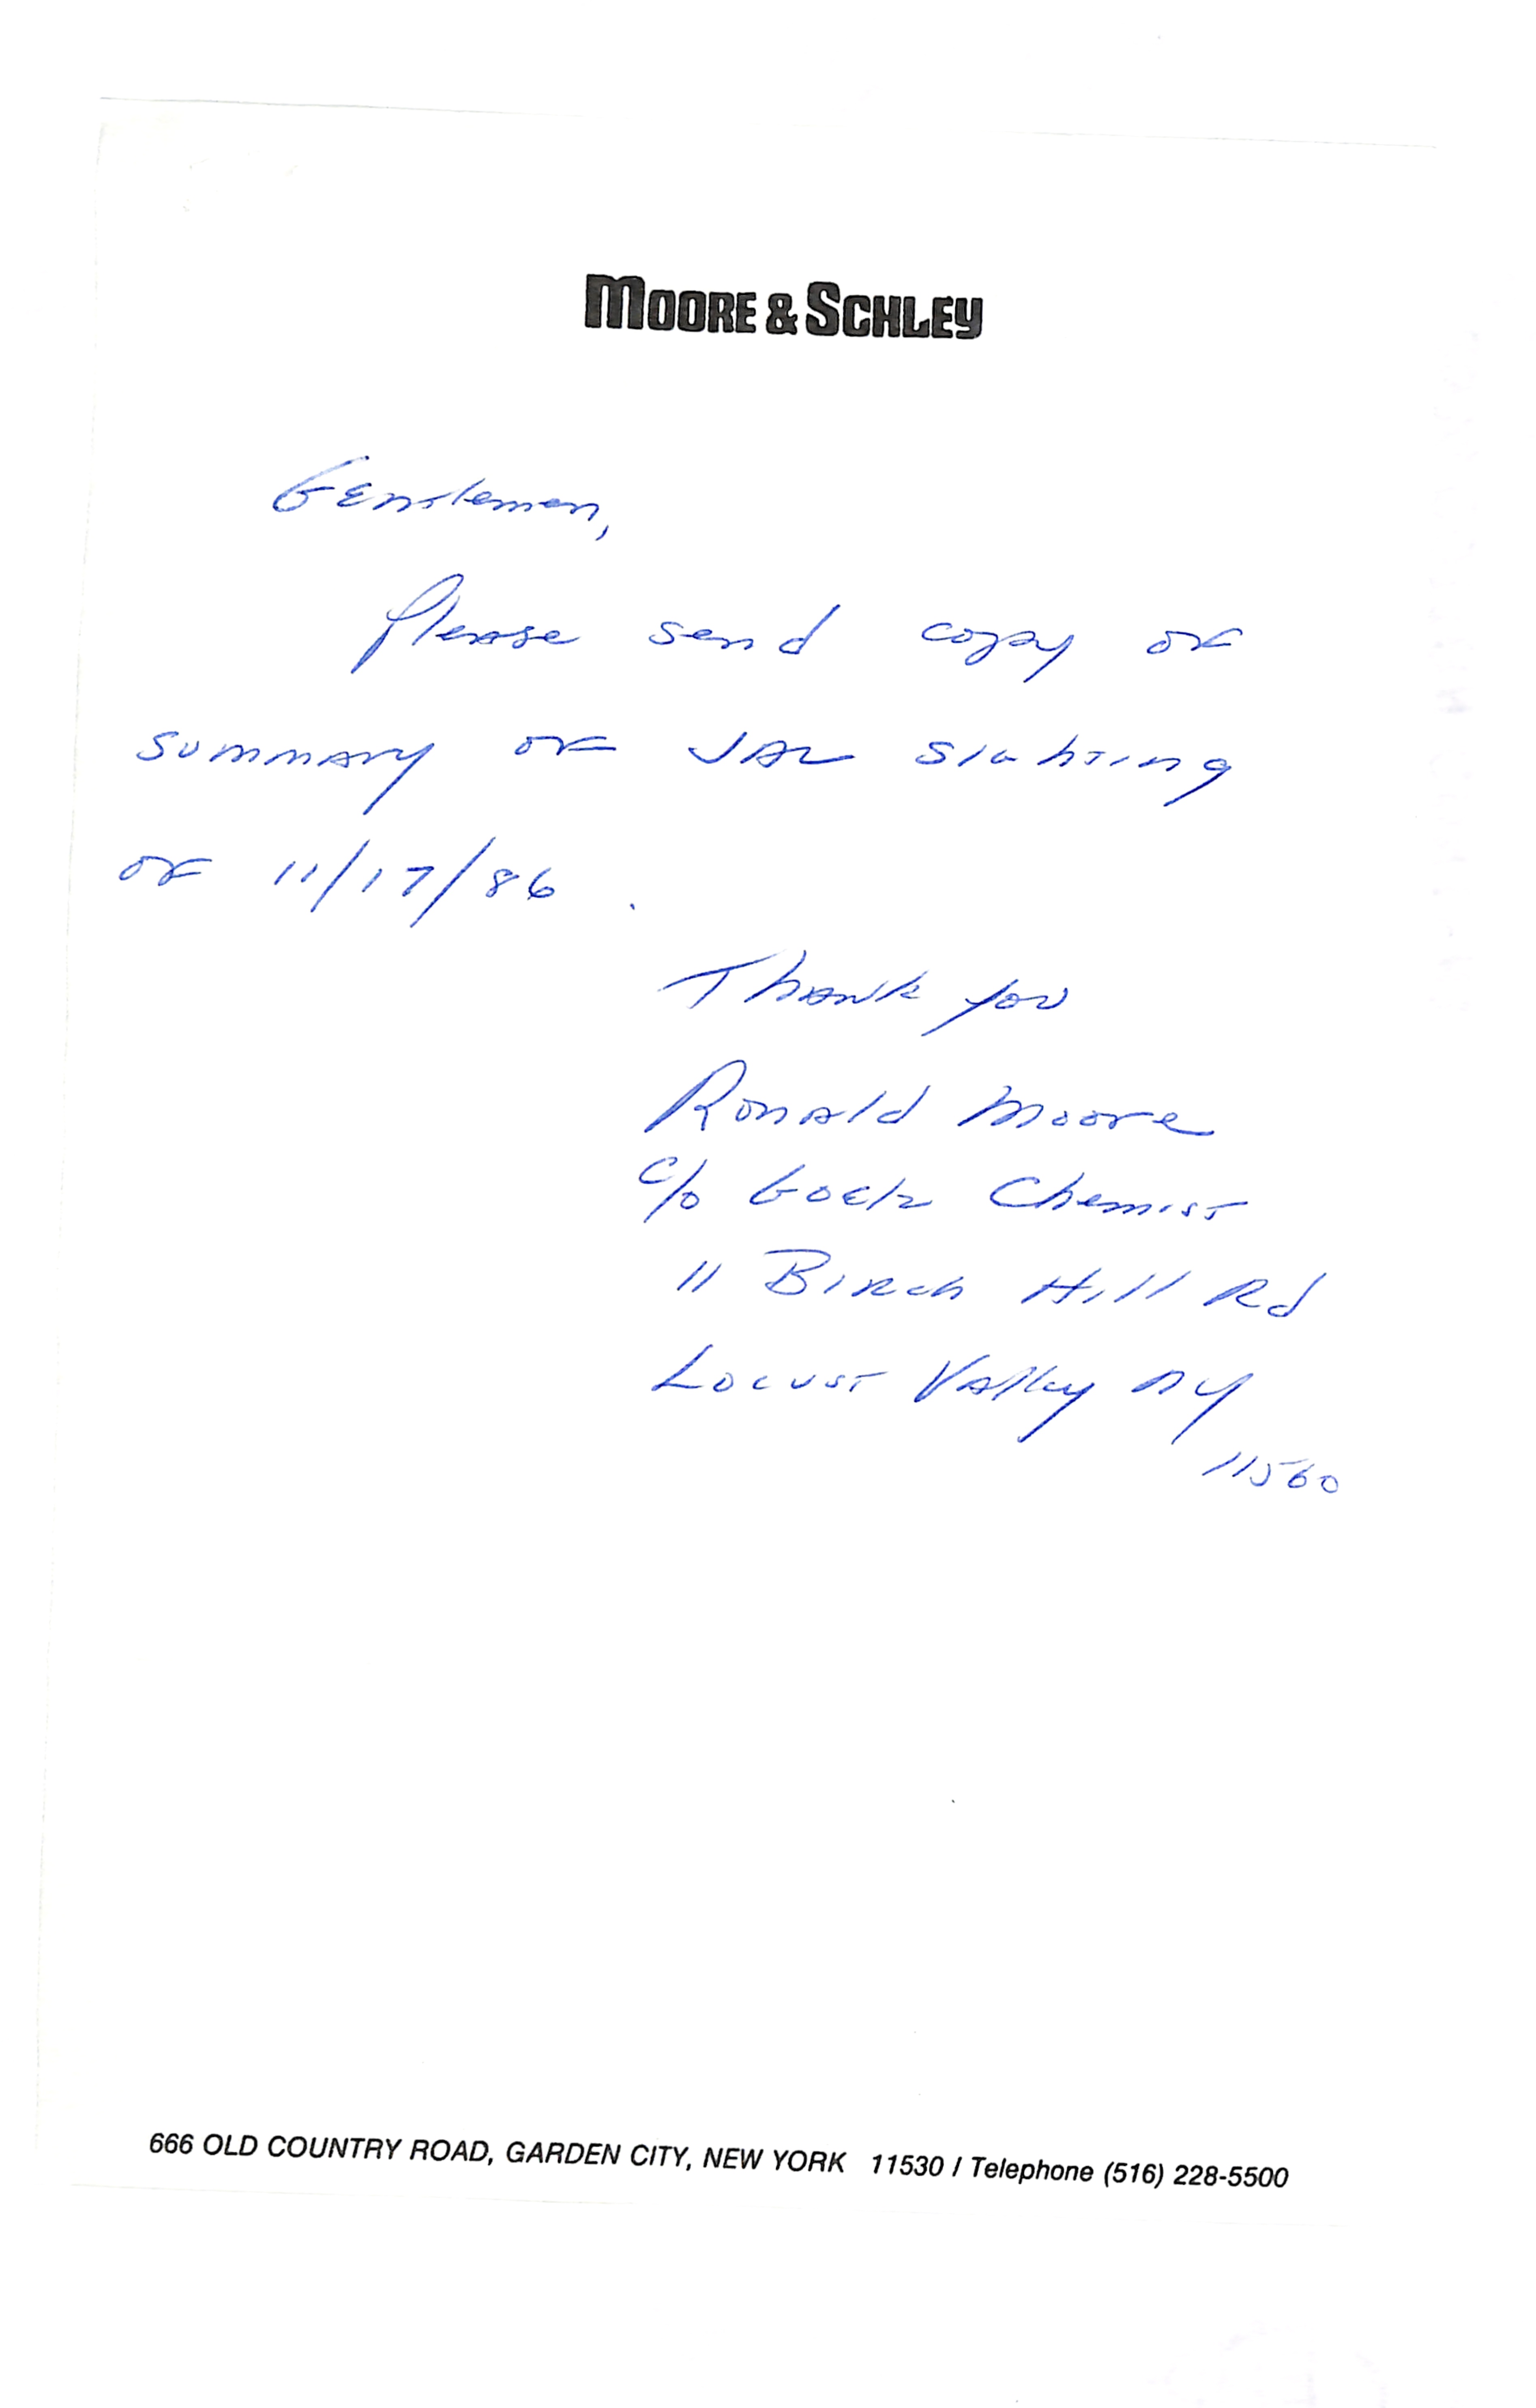 MOORE & SCHLEY
Gentlemen,
Please send copy of
summary of JAL sighting
of 11/17/86.
Thank you
Ronald Moore
c/o Goetz Chemist
11 Birch Hill Rd
Locust Valley NY
11560
666 OLD COUNTRY ROAD, GARDEN CITY, NEW YORK 11530 / Telephone (516) 228-5500